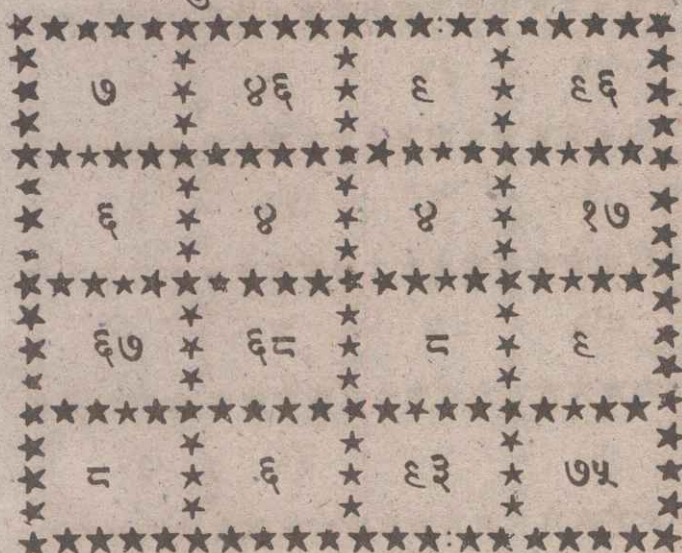 ७ ४६ ९ ९६
६ ४ ४ १७
६७ ६८ ८ ९
८ ६ ९३ ७५